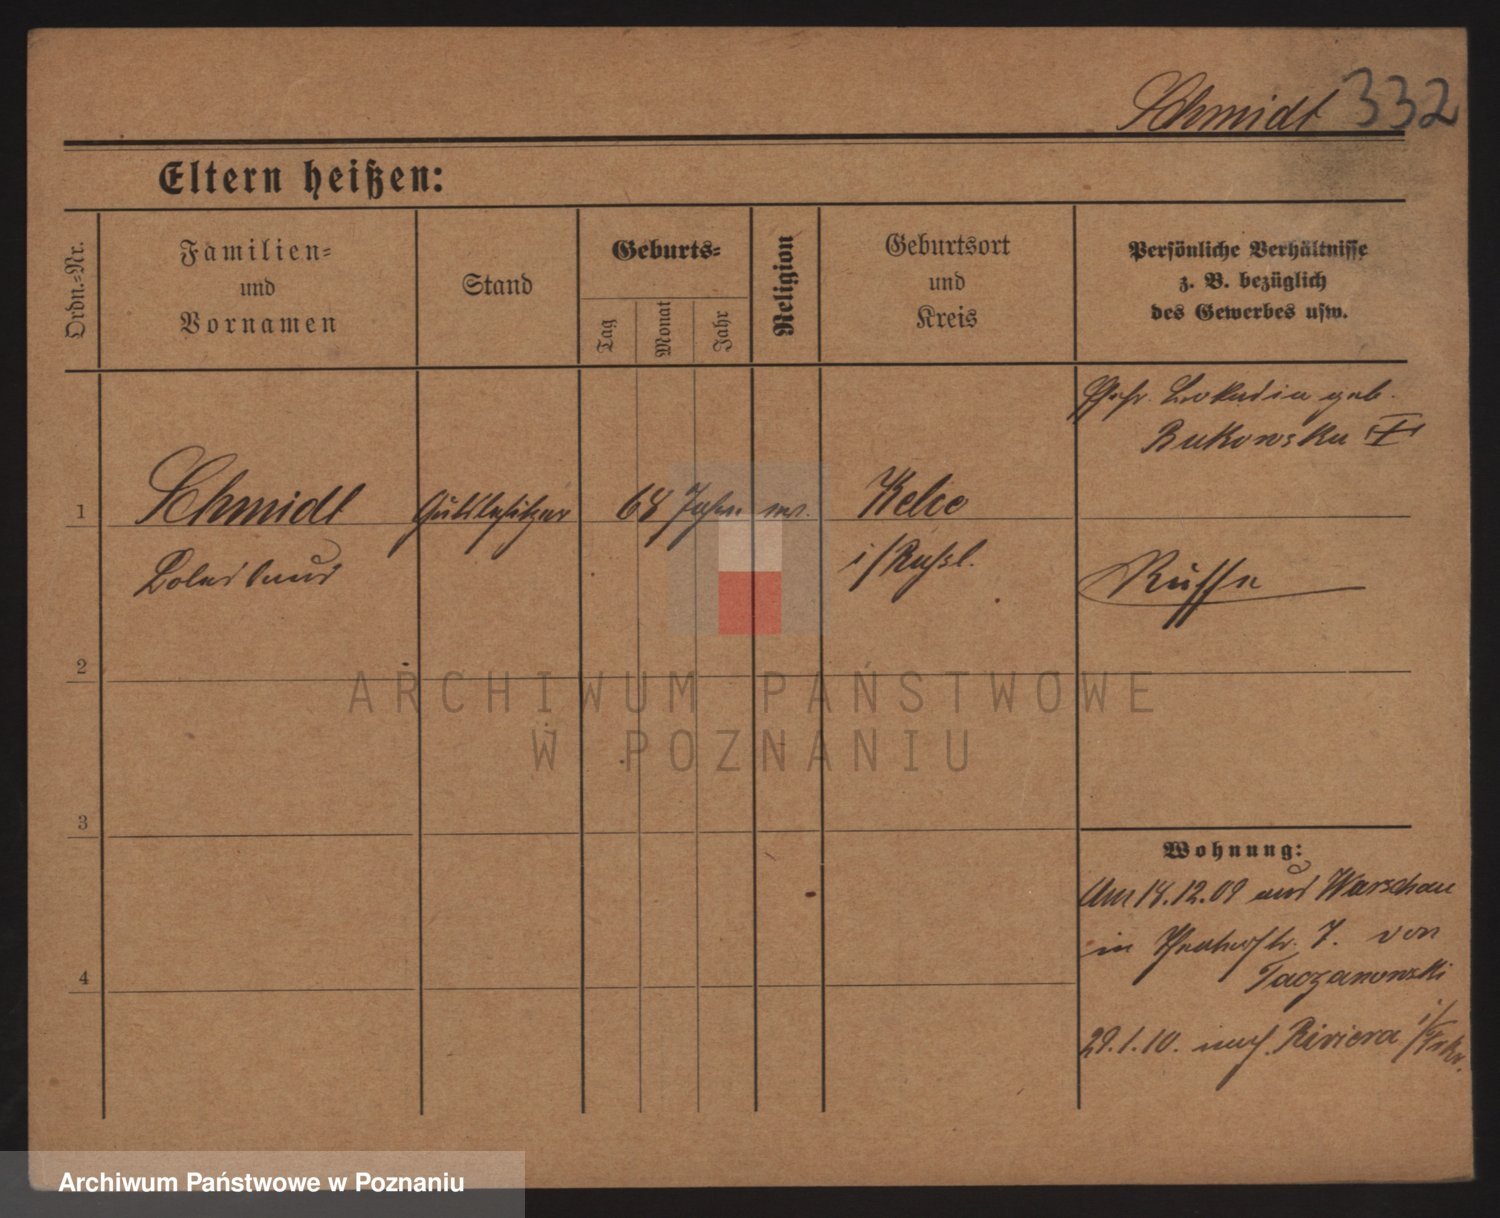 Schmidt 332
Eltern heißen:
Ordn.=Nr.
Familien=
und
Vornamen
Stand
Geburts=
Tag
Monat
Jahr
Religion
Geburtsort
und
Kreis
Persönliche Verhältnisse
z. B. bezüglich
des Gewerbes usw.
geb.
Bukowska
1
Schmidt
Gutsbesitzer
68 Jahre
Kelce
i/Russl.
Russe
2
3
4
Wohnung:
Am 18.12.09 aus Warschau
in 7. von
Taczanowski
29.1.10. nach Riviera
ARCHIWUM PAŃSTWOWE
W POZNANIU
Archiwum Państwowe w Poznaniu